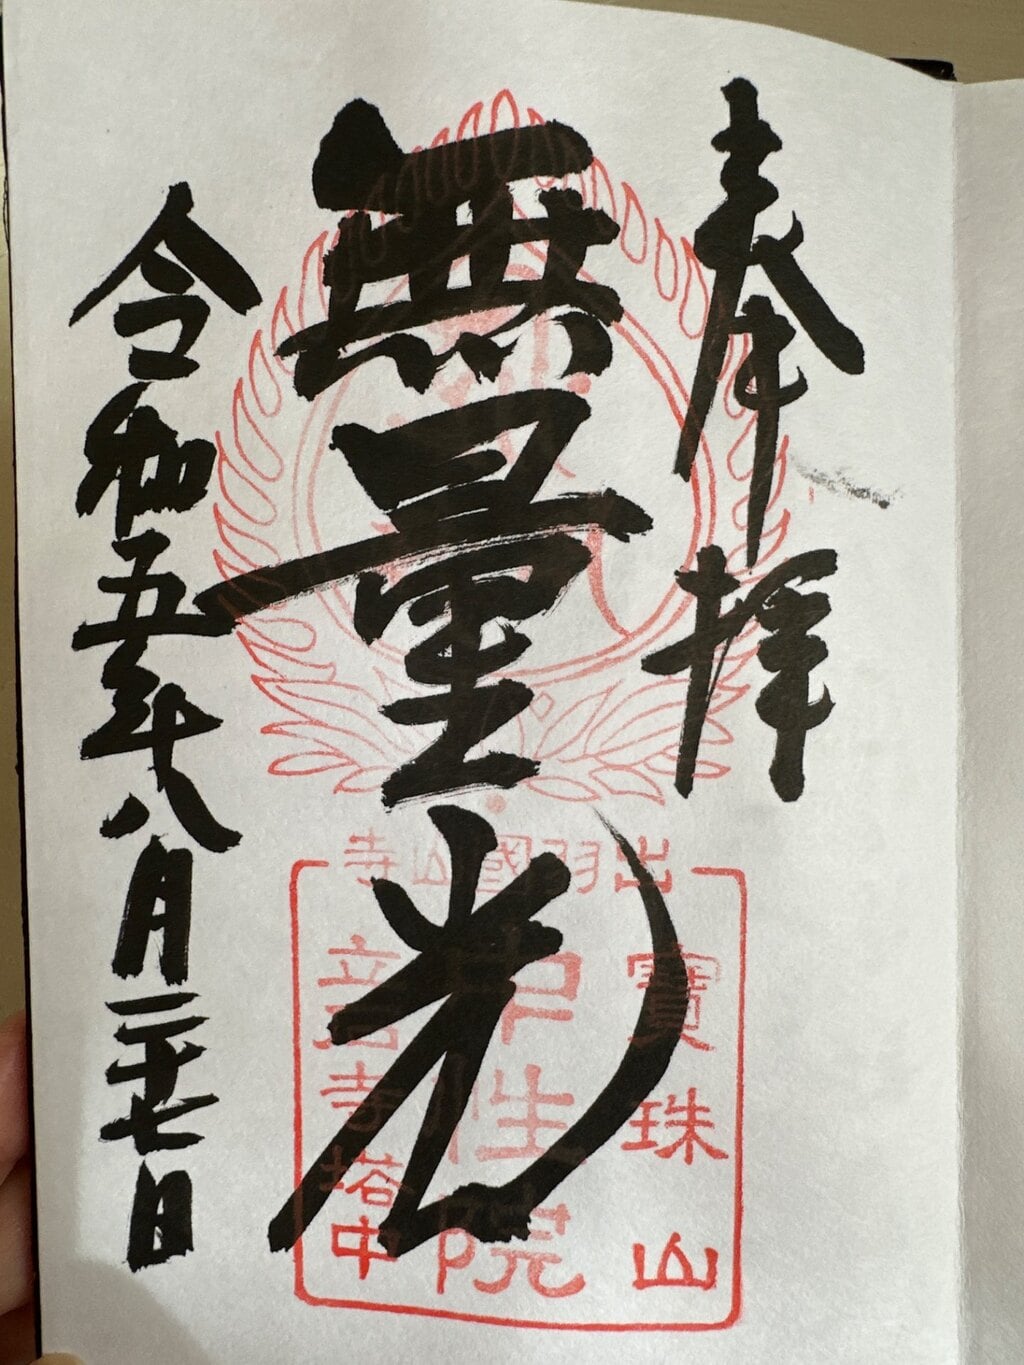 奉拝
無量光
令和五年八月二十七日
出羽國山寺
寶珠山
中性院
立石寺塔中